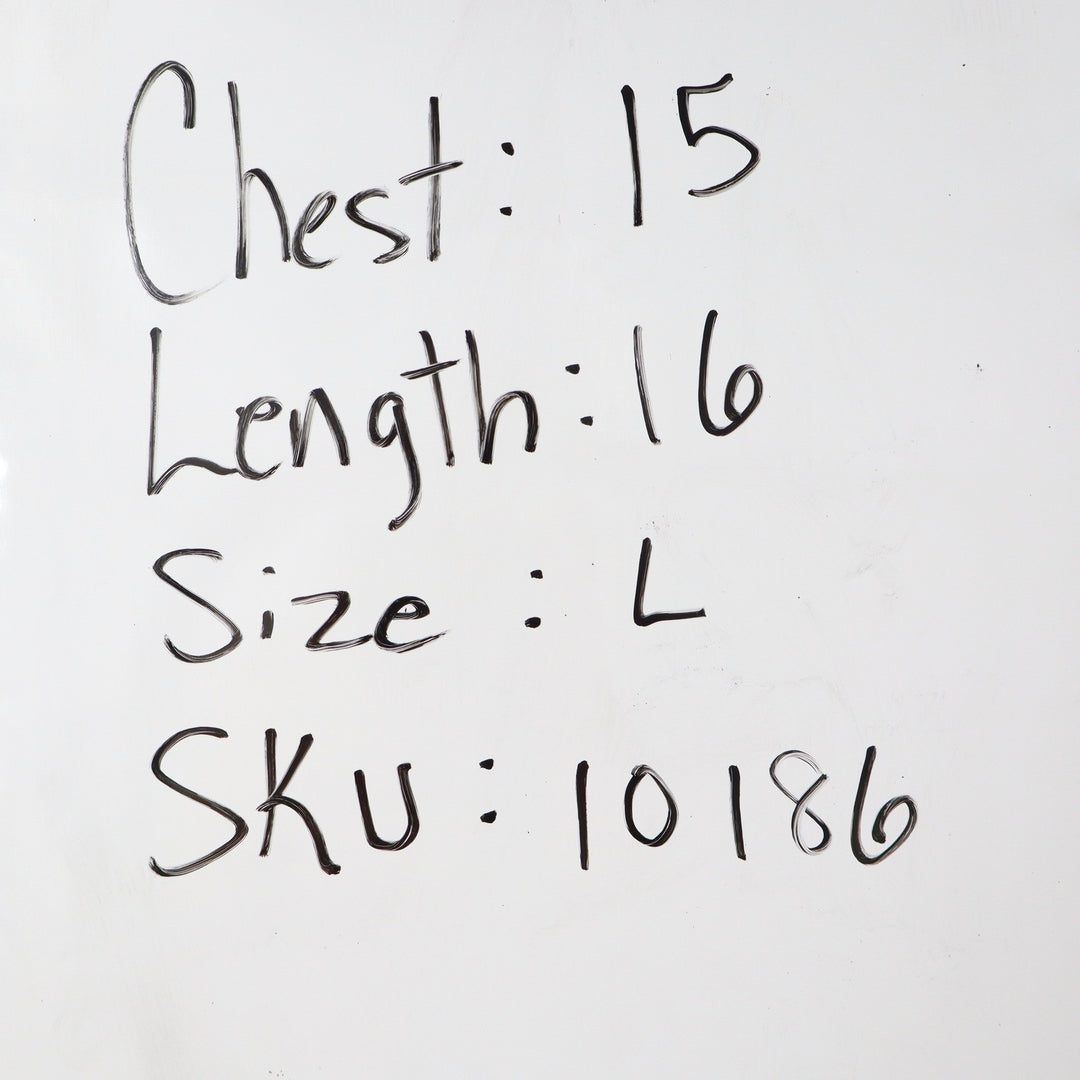 Chest: 15
Length: 16
Size: L
SKU: 10186